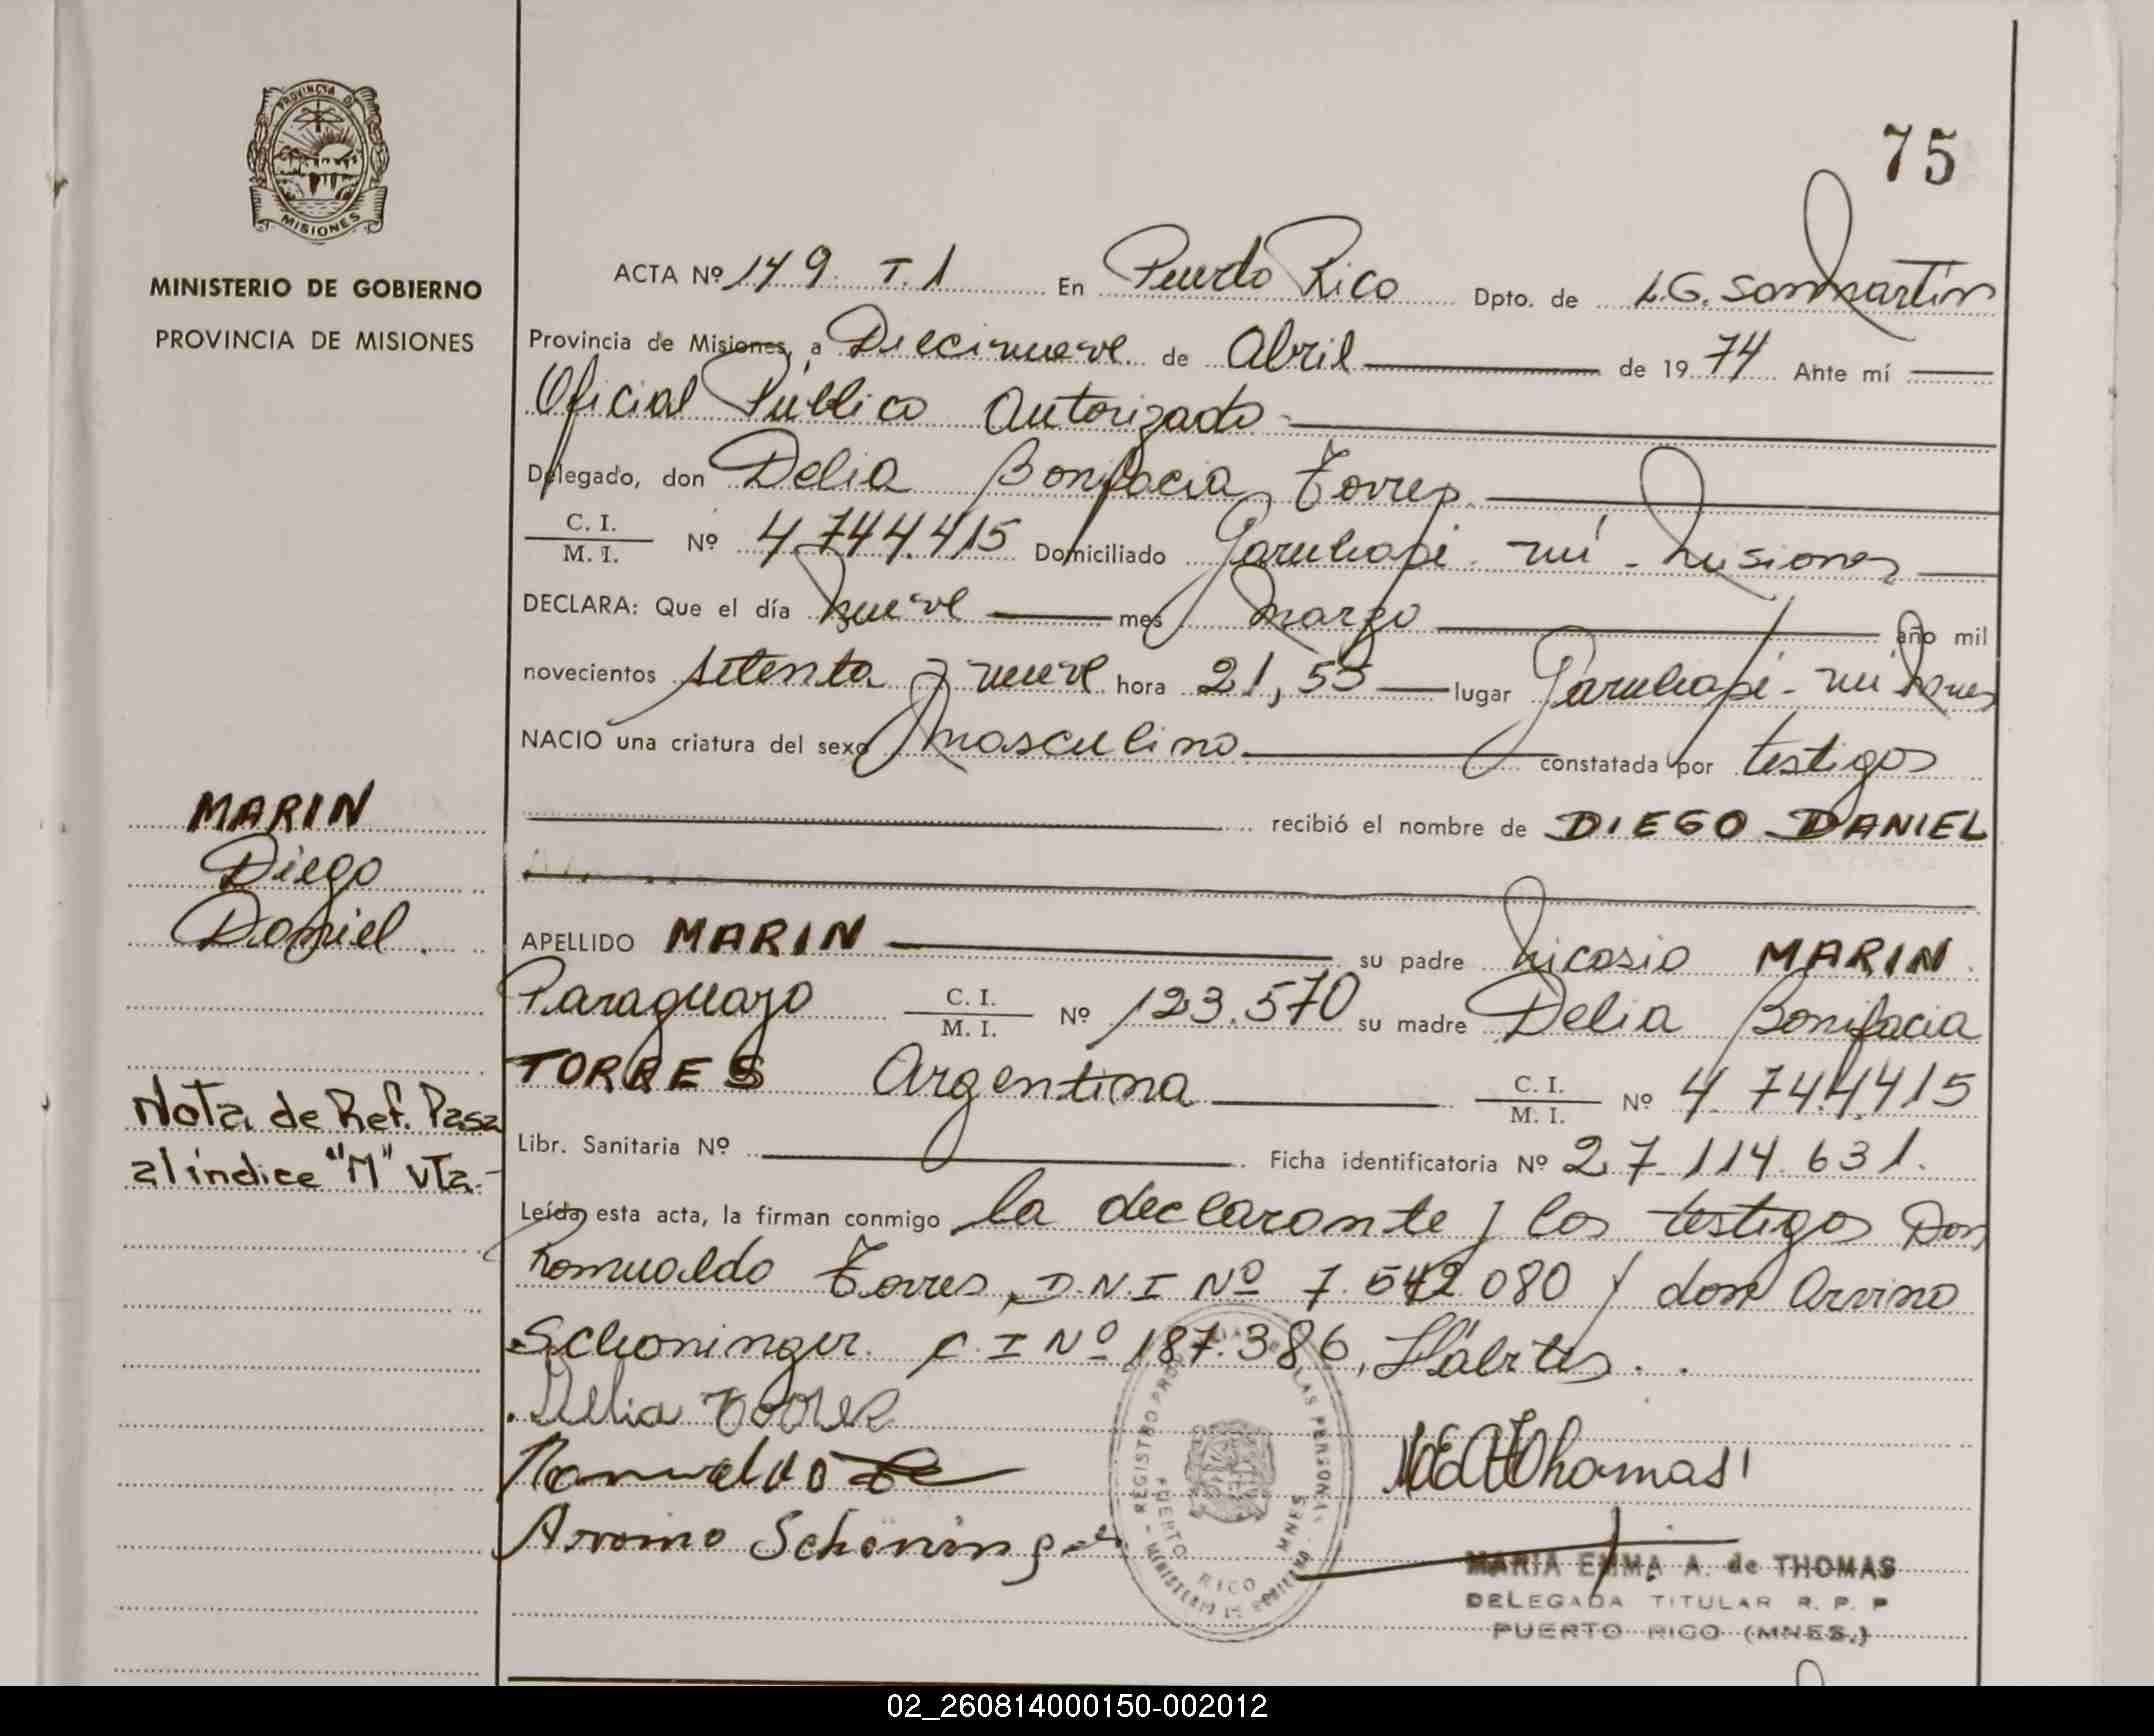 75
PROVINCIA DE
MISIONES
MINISTERIO DE GOBIERNO
PROVINCIA DE MISIONES
ACTA Nº 149. T.1 En Puerto Rico Dpto. de L.G. San Martín
Provincia de Misiones, a Diecinueve de Abril de 1974 Ante mí
Oficial Público Autorizado
Delegado, don Delia Bonifacia Torres.
C. I. / M. I. Nº 4.744.415 Domiciliado Garuhapé-mí-Misiones
DECLARA: Que el día nueve mes marzo año mil
novecientos setenta y nueve hora 21,55 lugar Garuhapé-mí
NACIO una criatura del sexo masculino. constatada por testigos
recibió el nombre de DIEGO DANIEL
APELLIDO MARIN su padre Nicasio MARIN
Paraguayo C. I. / M. I. Nº 123.570 su madre Delia Bonifacia
TORRES Argentina C. I. / M. I. Nº 4.744.415
Libr. Sanitaria Nº Ficha identificatoria Nº 27.114.631.
Leída esta acta, la firman conmigo la declarante y los testigos Don
Romualdo Torres, D.N.I Nº 7.542.080 y don Arvino
Schoninger. C.I Nº 187.386, Hábiles.
Delia Torres
Romualdo
Arvino Schöninger
MARIA EMMA A. de THOMAS
DELEGADA TITULAR R. P. P
PUERTO RICO (MNES.)
MARIN
Diego
Daniel.
Nota de Ref. Pasa
al índice "M" vta.-
REGISTRO PROVINCIAL DE LAS PERSONAS
PUERTO RICO MNES
MINISTERIO DE GOBIERNO
02_260814000150-002012